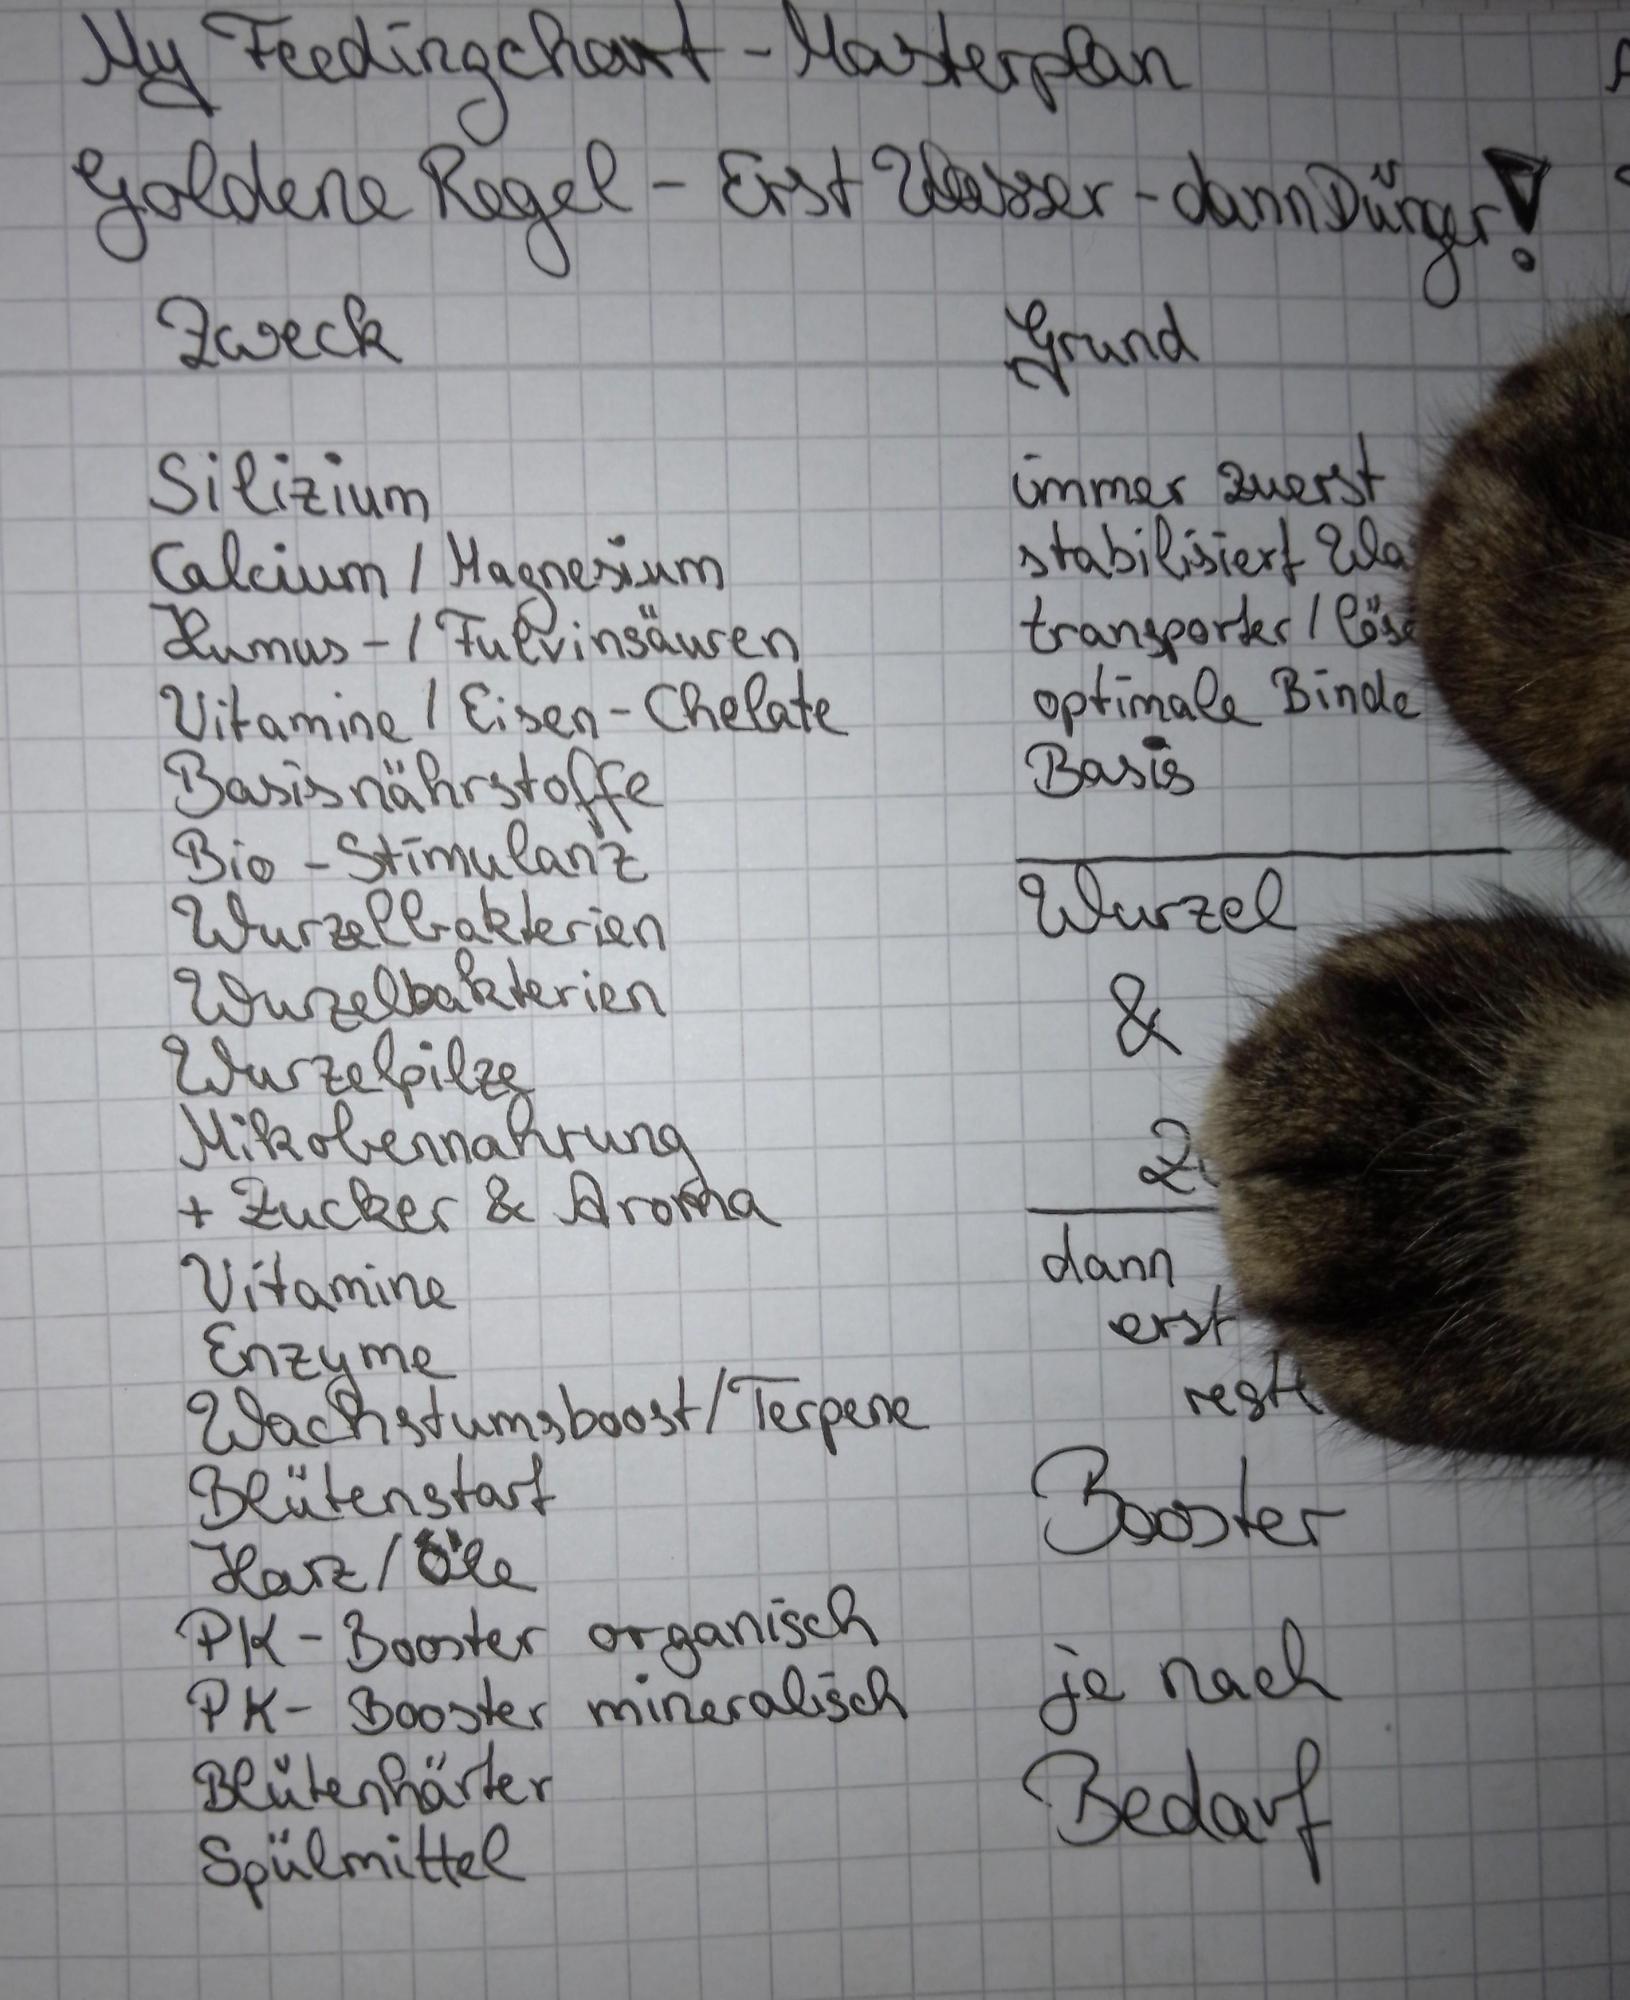 My Feedingchart - Masterplan
Goldene Regel - Erst Wasser - dann Dünger!
Zweck Grund
Silizium immer zuerst
Calcium / Magnesium stabilisiert Wa
Humus- / Fulvinsäuren transporter / löse
Vitamine / Eisen-Chelate optimale Binde
Basisnährstoffe Basis
Bio - Stimulanz
Wurzelbakterien Wurzel
Wurzelbakterien &
Wurzelpilze
Mikobennahrung
+ Zucker & Aroma
Vitamine dann
Enzyme erst
Wachstumsboost/Terpene
Blütenstart Booster
Harz/Öle
PK-Booster organisch
PK- Booster mineralisch je nach
Blütenhärter Bedarf
Spülmittel